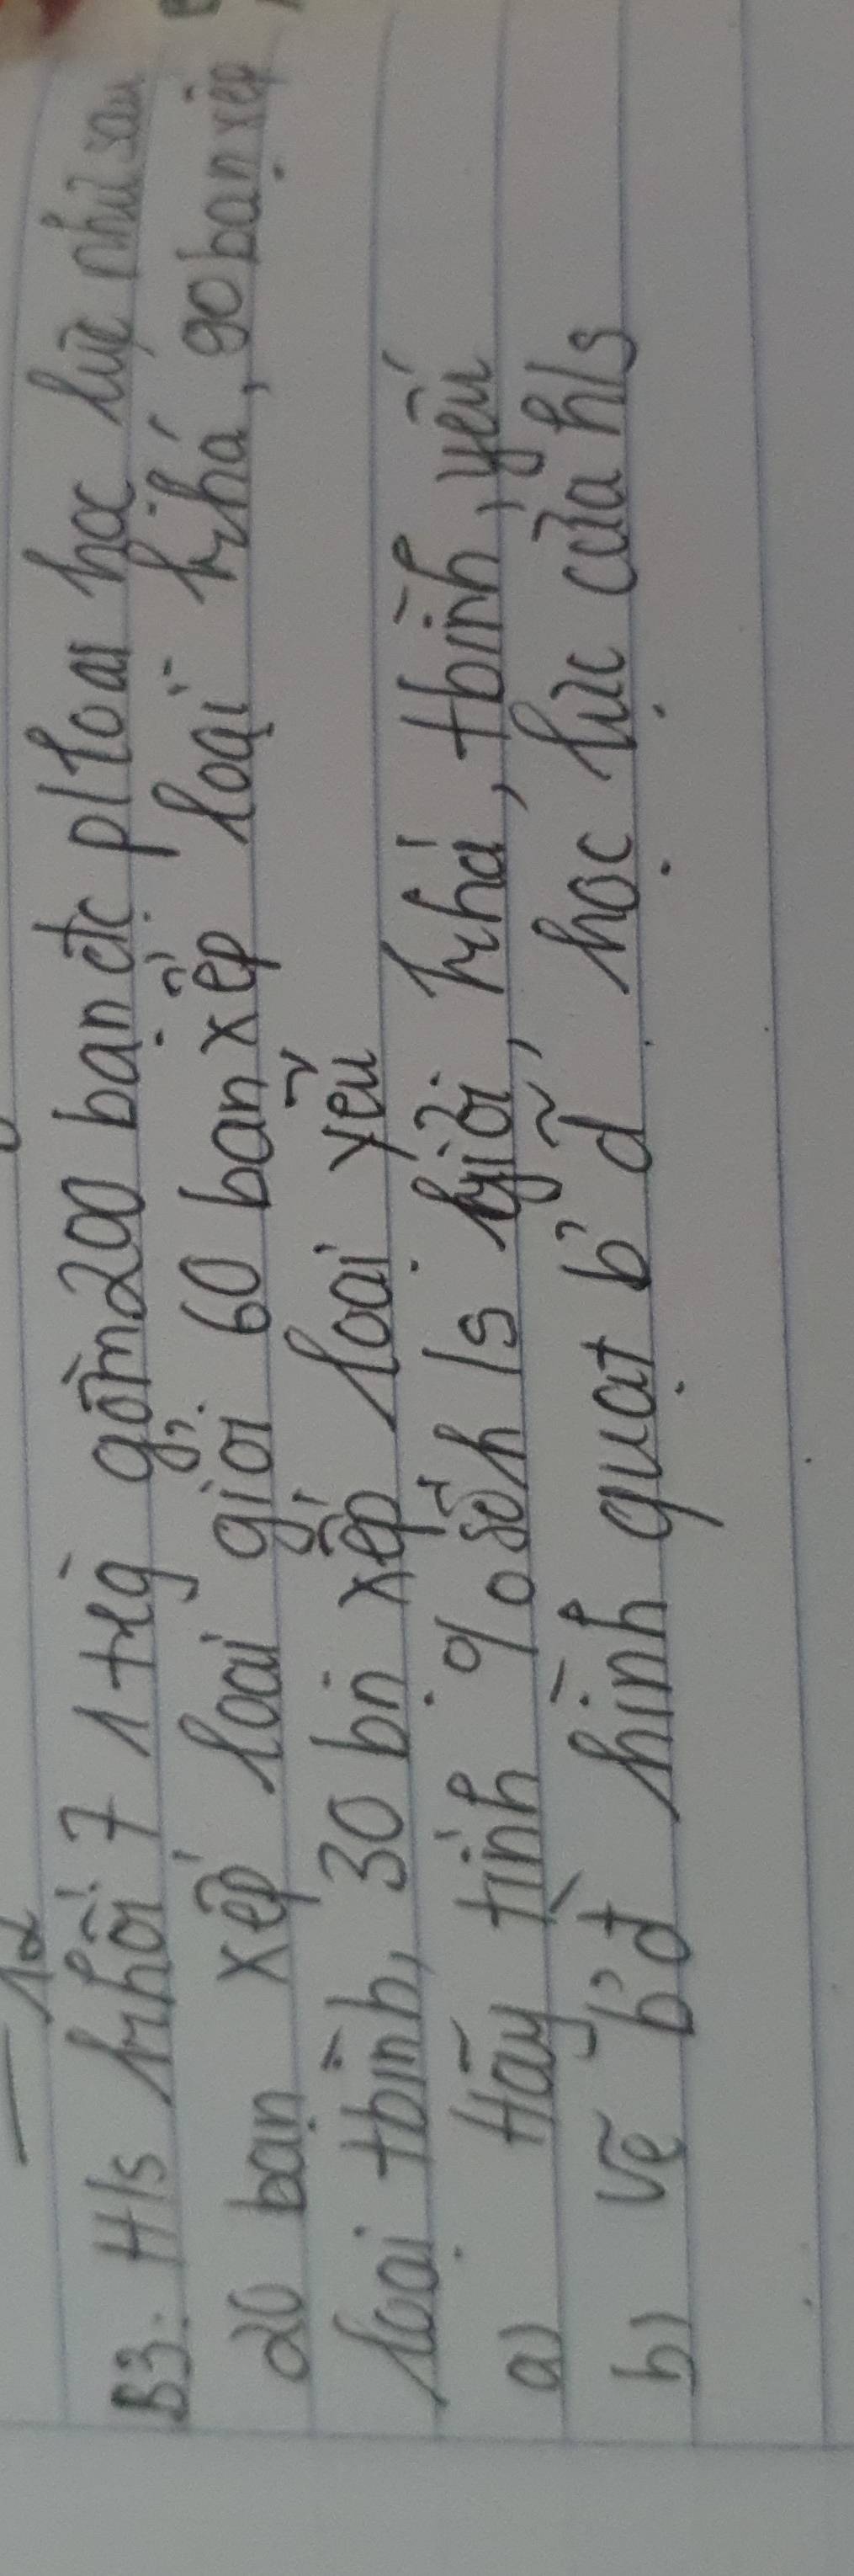 B3. H/s khối 7 1 trg gồm 200 bạn đc p/loại học lực như sau
20 bạn xếp loại giỏi 60 bạn xếp loại khá, 90 bạn xếp
loại tbình, 30 bn xếp loại yếu
a) Hãy tính % số h/s giỏi, khá, tbình, yếu
b) Vẽ b'đ hình quạt b'd học lực của h/s